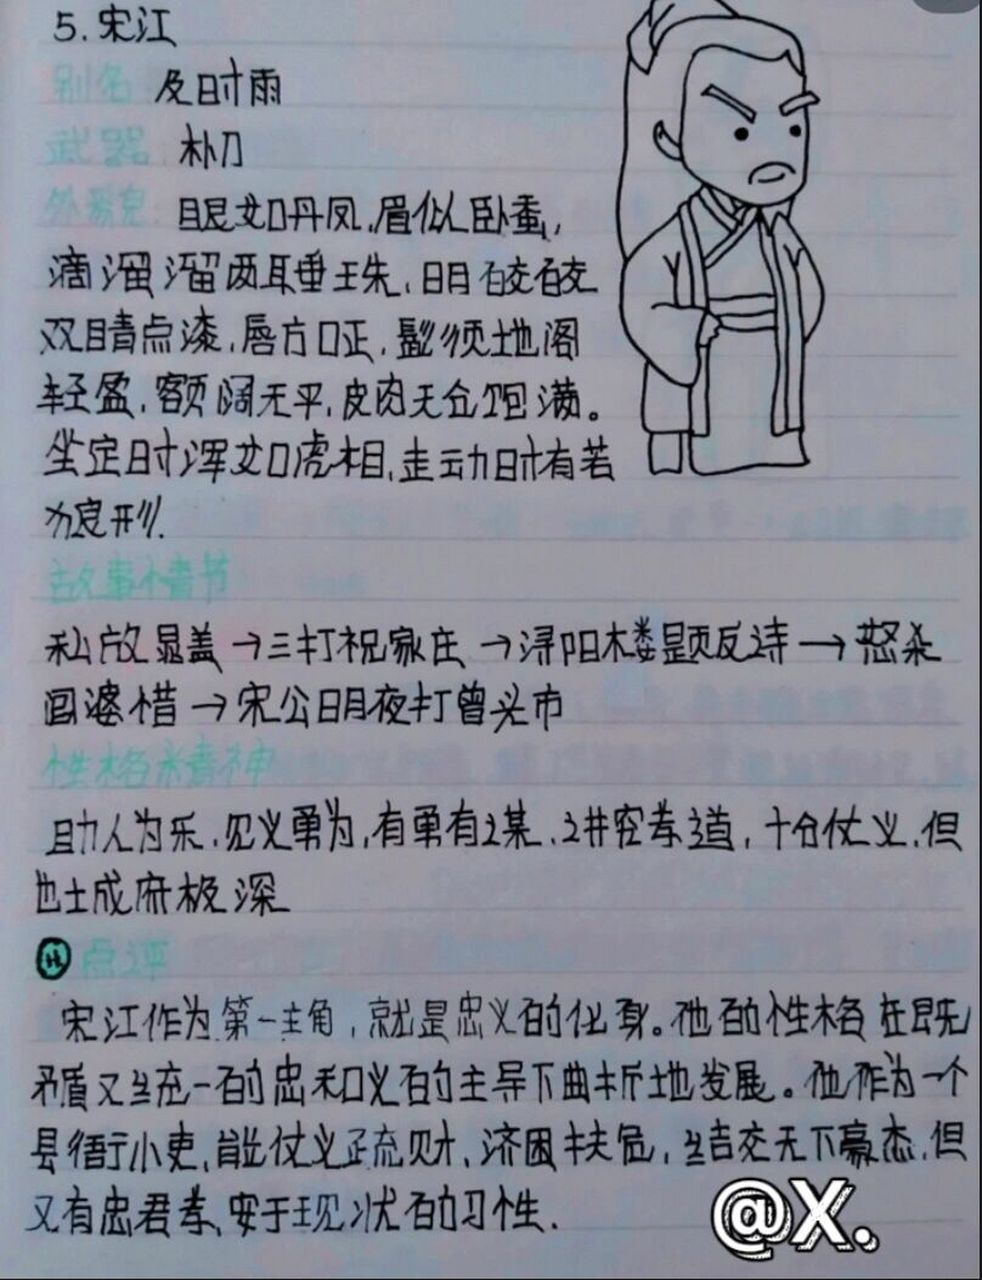 5.宋江
别名 及时雨
武器 朴刀
外貌:眼如丹凤,眉似卧蚕,
滴溜溜两耳垂珠,明皎皎
双睛点漆,唇方口正,髭须地阁
轻盈,额阔天平,皮肉天仓饱满。
坐定时浑如虎相,走动时有若
狼形.
故事情节
私放晁盖→三打祝家庄→浔阳楼题反诗→怒杀
阎婆惜→宋公明夜打曾头市
性格精神
助人为乐,见义勇为,有勇有谋,讲究孝道,十分仗义,但
也城府极深
点评
宋江作为第一主角,就是忠义的化身。他的性格在既
矛盾又统一的忠和义的主导下曲折地发展。他作为一个
县衙小吏,能仗义疏财,济困扶危,结交天下豪杰,但
又有忠君孝,安于现状的习性.
@X.